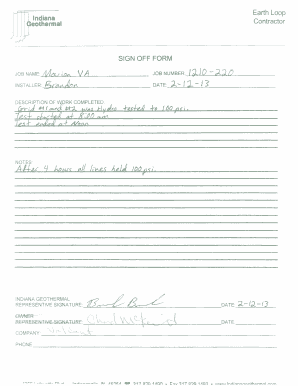 Indiana
Geothermal
Earth Loop
Contractor
SIGN OFF FORM
JOB NAME: Marion VA JOB NUMBER: 1210-220
INSTALLER: Brandon DATE: 2-12-13
DESCRIPTION OF WORK COMPLETED
Grid #1 and #2 was Hydro tested to 100 psi.
Test started at 8:00 am
Test ended at Noon
NOTES:
After 4 hours all lines held 100 psi.
INDIANA GEOTHERMAL
REPRESENTATIVE SIGNATURE DATE: 2-12-13
OWNER
REPRESENTATIVE SIGNATURE DATE
COMPANY
PHONE